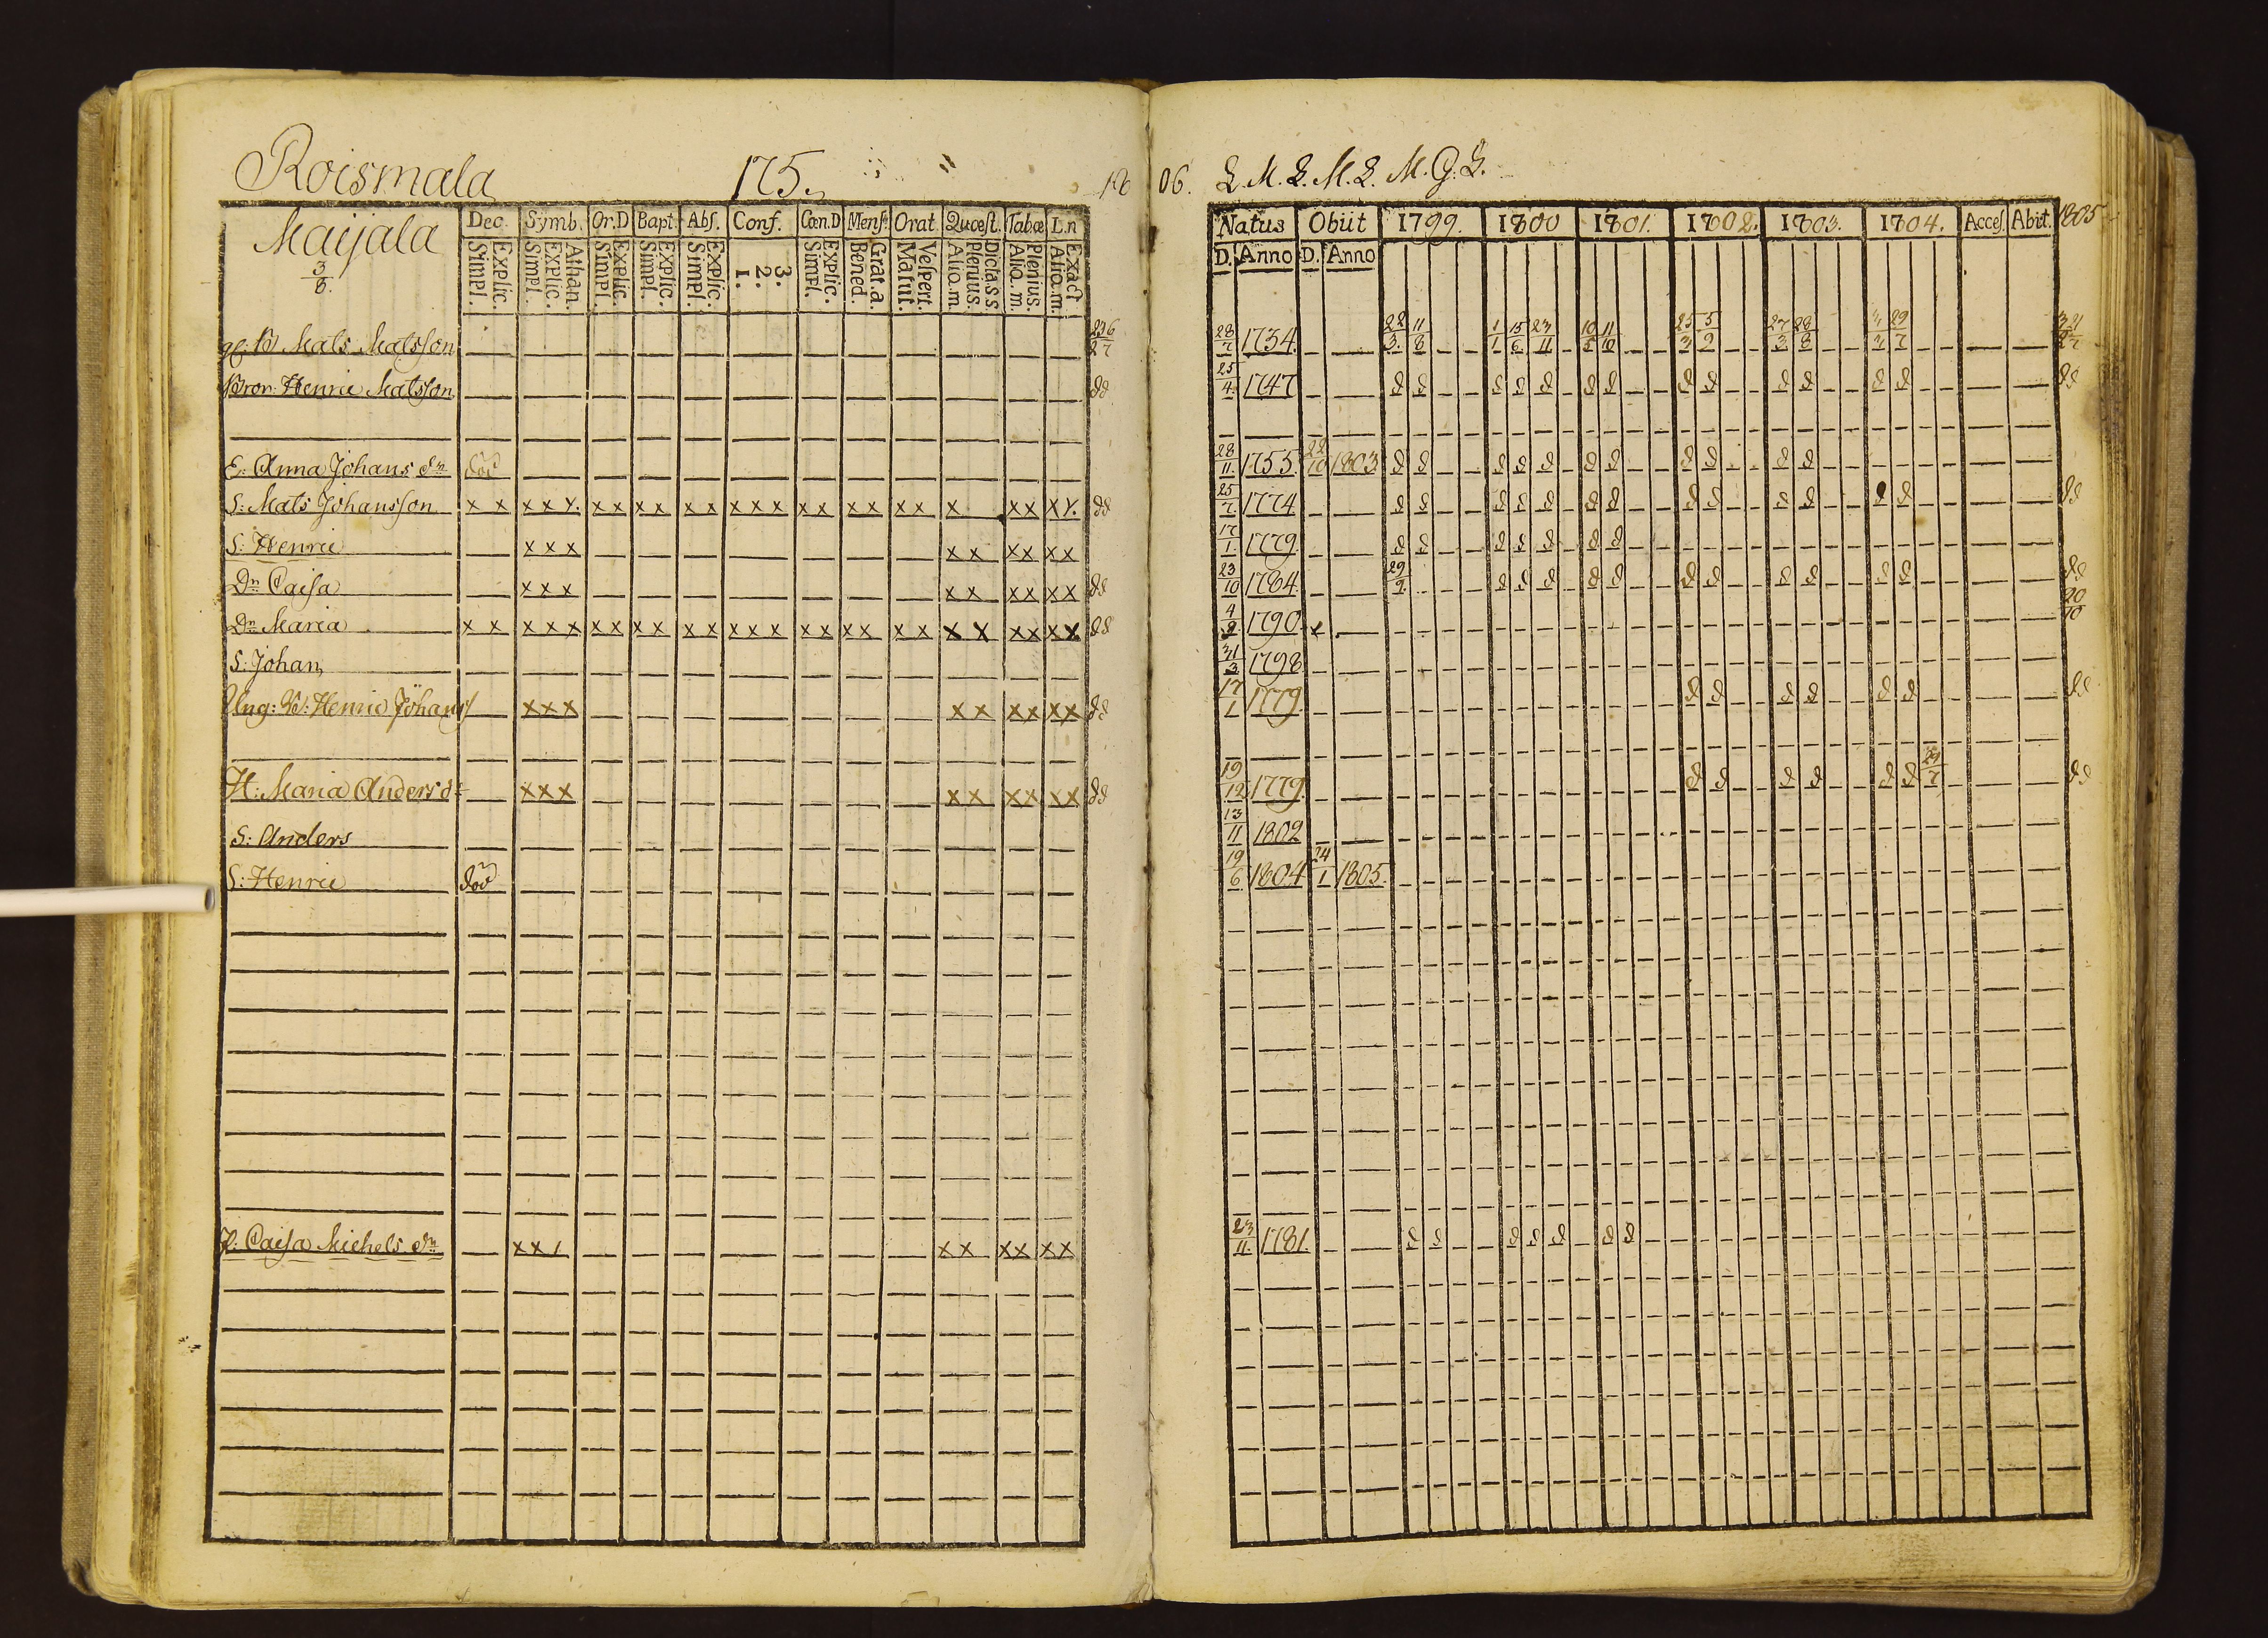 Roismala 175. 18 06. L. M. L. M. L. M. G. L.
Maijala
3/8.
Dec. Symb. Or.D Bapt. Abs. Conf. Cœn.D Mens. Orat. Quœst. Tab.œ L.n
Simpl. Explic. Simpl. Explic. Athan. Simpl. Explic. Simpl. Explic. Simpl. Explic. 1. 2. 3. Simpl. Explic. Bened. Grat. a. Matut. Vespert. Aliq.m. Plenius. Dicta.s.s Aliq.m. Plenius. Aliq.m. Exact
Natus Obiit 1799. 1800 1801. 1802. 1803. 1804. Acces. Abit. 1805
D. Anno D. Anno
Mats Matsson 28/7 1734. 22/3. 11/8 1/1 15/6. 23/11 10/5 11/10 25/3 5/9 27/3 28/8 29/7
Bror Henric Matsson dd 25/4. 1747 d d d d d d d d d d d d d dd
E: Anna Johans dr död 28/11. 1755. 22/10 1803 d d d d d d d d d d d
S: Mats Johansson x x x x x x x x x x x x x x x x x x x x x x x x x dd 25/7. 1774 d d d d d d d d d d d d d dd
S: Henric x x x x x x x x x 17/1. 1779. d d d d d d d
Dr Caisa x x x x x x x x x dd 23/10 1784. 29/9. d d d d d d d d d d d dd
Dr Maria x x x x x x x x x x x x x x x x x x x x x x x x x x dd 4/9. 1790. 20/10
S: Johan 31/3 1798
Ung: B: Henric Johans x x x x x x x x x dd 17/1 1779. d d d d d d dd
H: Maria Anders dr x x x x x x x x x dd 19/12 1779. d d d d d d 24/7 dd
S: Anders 13/11 1802
S: Henric död 19/6 1804 24/1 1805.
P: Caisa Michels dr x x x x x x x x 23/11. 1781. d d d d d d d